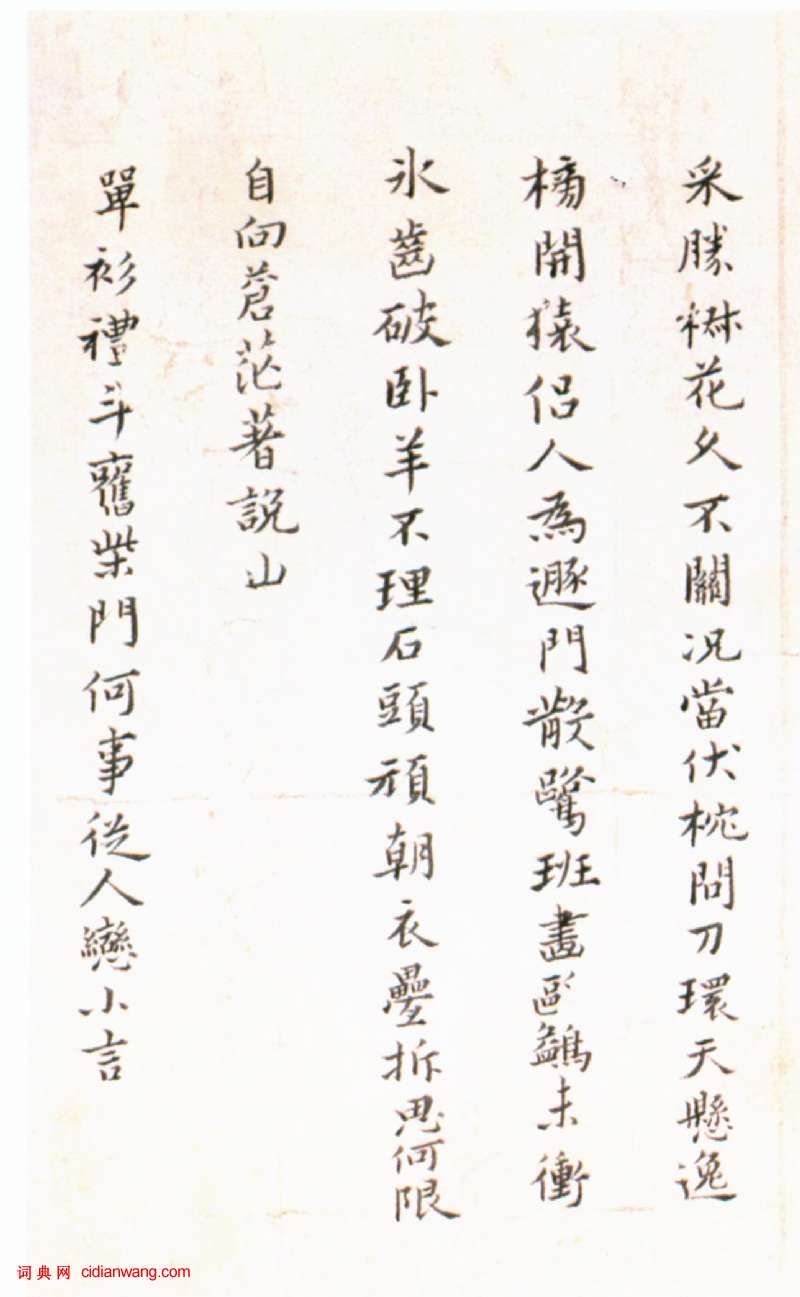 采勝椒花久不關况當伏枕問刀環天懸逸
橘開猿侣人為遯門散鷺班畫鷁未衝
氷齒破卧羊不理石頭頑朝衣疊拆思何限
自向蒼茫著説山
單衫禮斗舊柴門何事從人戀小言
词典网 cidianwang.com